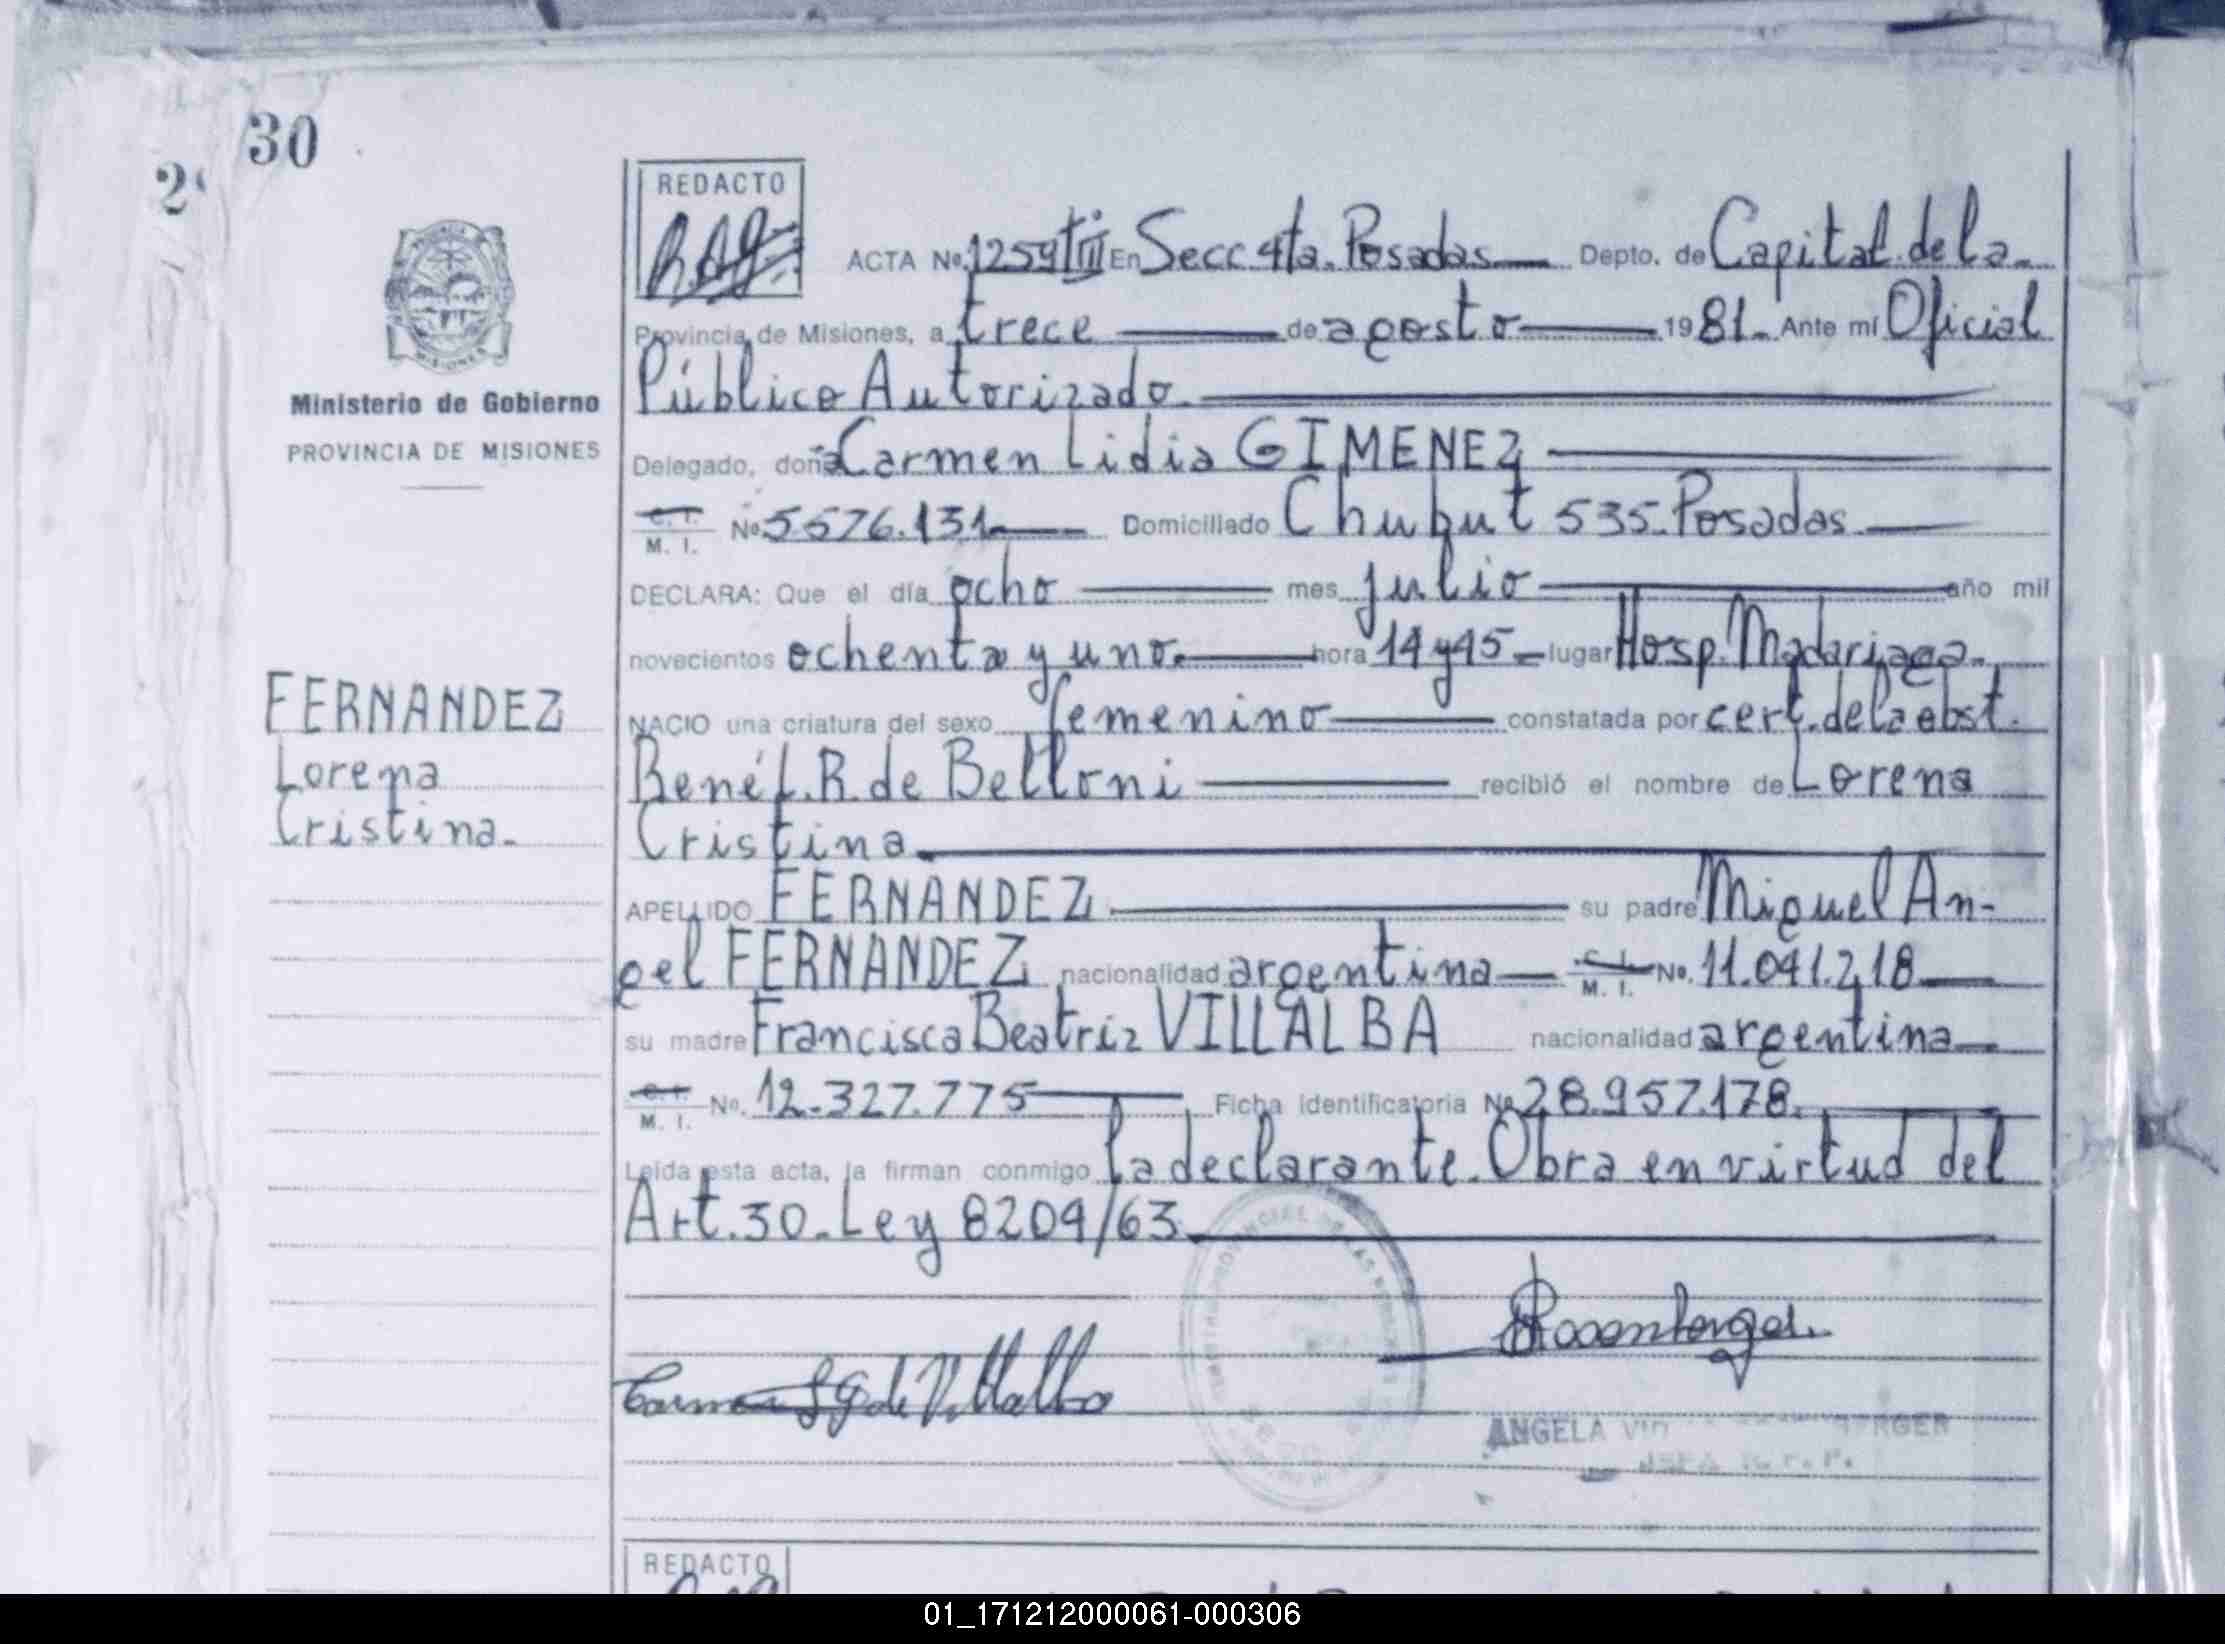 30
2
REDACTO
ACTA No. 1259 tº III En Secc 4ta. Posadas Depto. de Capital de la
Provincia de Misiones, a trece de agosto 1981. Ante mí Oficial
Público Autorizado
Ministerio de Gobierno
PROVINCIA DE MISIONES
Delegado, doña Carmen Lidia GIMENEZ
C. I.
M. I. No 5576.131 Domiciliado Chubut 535. Posadas
DECLARA: Que el día ocho mes julio año mil
novecientos ochenta y uno. hora 14 y 45 lugar Hosp. Madariaga.
NACIO una criatura del sexo femenino constatada por cert. de la obst.
René L. R. de Belloni recibió el nombre de Lorena
Cristina
FERNANDEZ
Lorena
Cristina.
APELLIDO FERNANDEZ su padre Miguel An-
gel FERNANDEZ nacionalidad argentina C. I.
M. I. No. 11.041.218
su madre Francisca Beatriz VILLALBA nacionalidad argentina
C. I.
M. I. No. 12.327.775 Ficha identificatoria No 28.957.178.
Leída esta acta, la firman conmigo la declarante. Obra en virtud del
Art. 30. Ley 8204/63
Carmen L G de Villalba
Rosenberger
ANGELA
JEFA
REDACTO
01_171212000061-000306